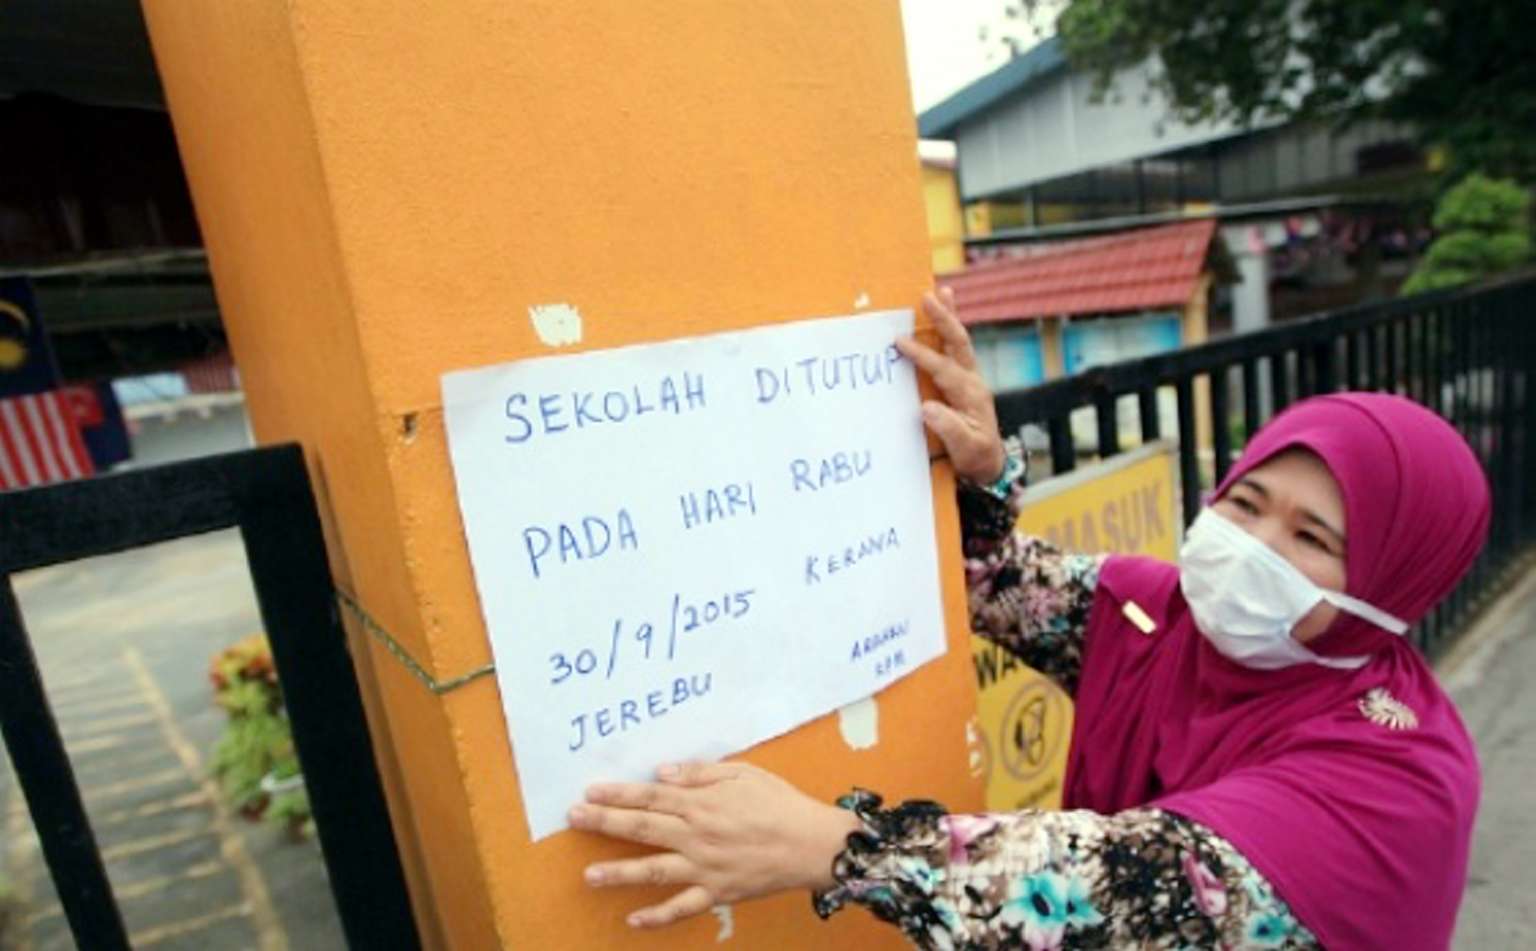 SEKOLAH DITUTUP
PADA HARI RABU
30/9/2015 KERANA
JEREBU
ARAHAN
KPM
MASUK
WA